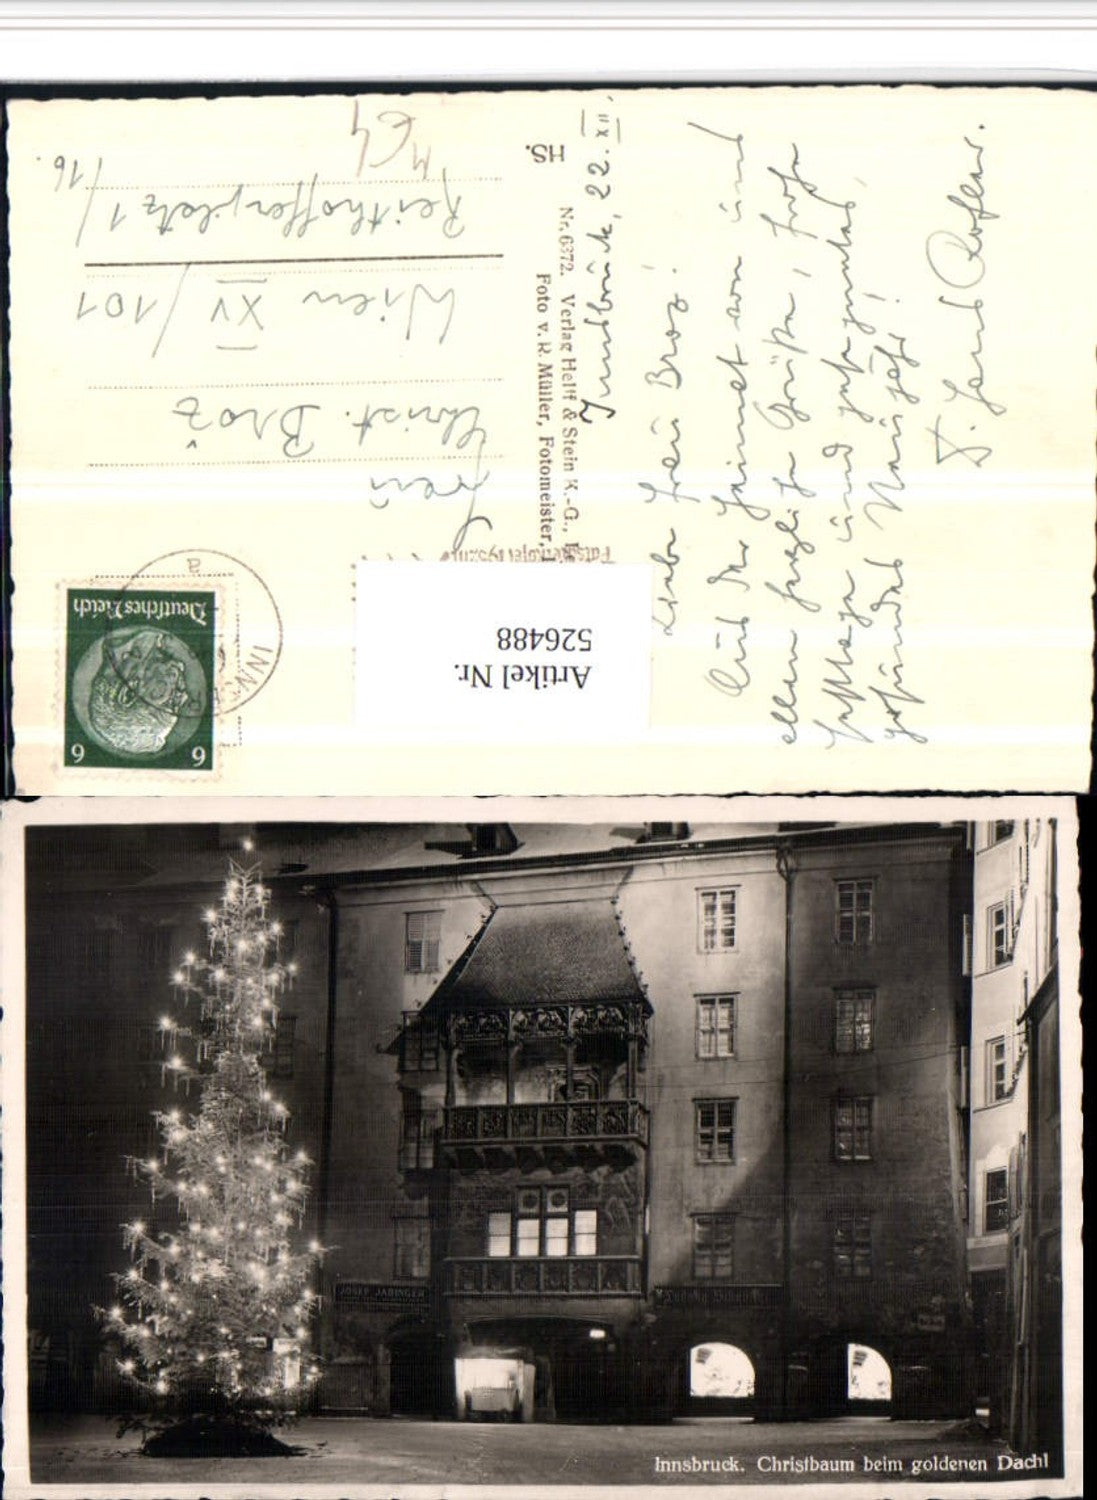 Innsbruck, 22. XII.
Liebe Frau Brož!
Aus der Heimat von uns
allen herzliche Grüße, frohe
Festtage und gutes
gesundes Neujahr!
HS.
Nr. 6372. Verlag Helff & Stein K.-G.,
Foto v. R. Müller, Fotomeister,
Artikel Nr.
526488
Deutsches Reich
6 6
INN
a
Frau
Christ. Brož
Wien XV/101
Reithofferplatz 1/
/16.
JOSEF JABINGER
Innsbruck. Christbaum beim goldenen Dachl